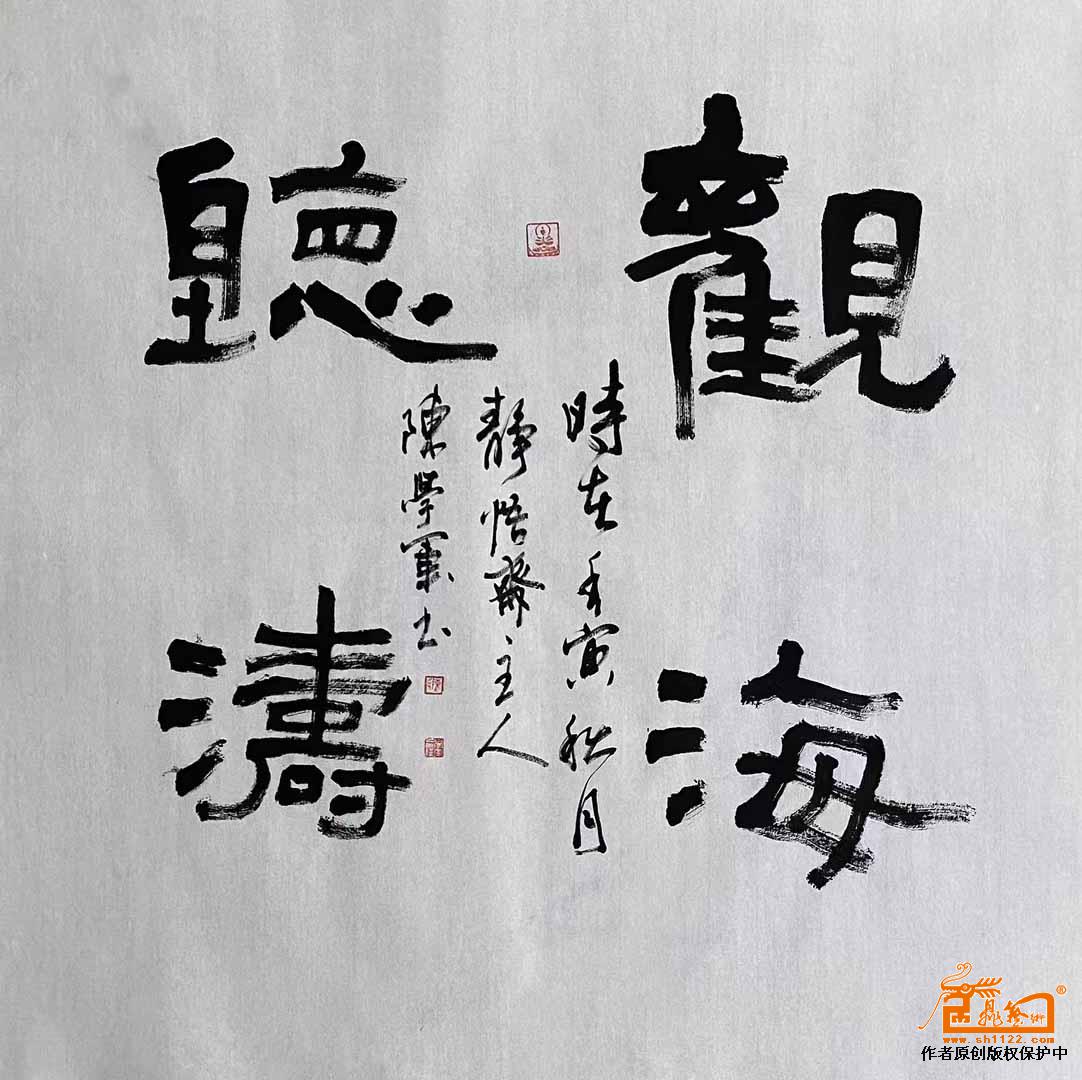 觀海
聽濤
時在壬寅秋月
靜悟齋主人
陳學軍书
www.sh1122.com
作者原创版权保护中